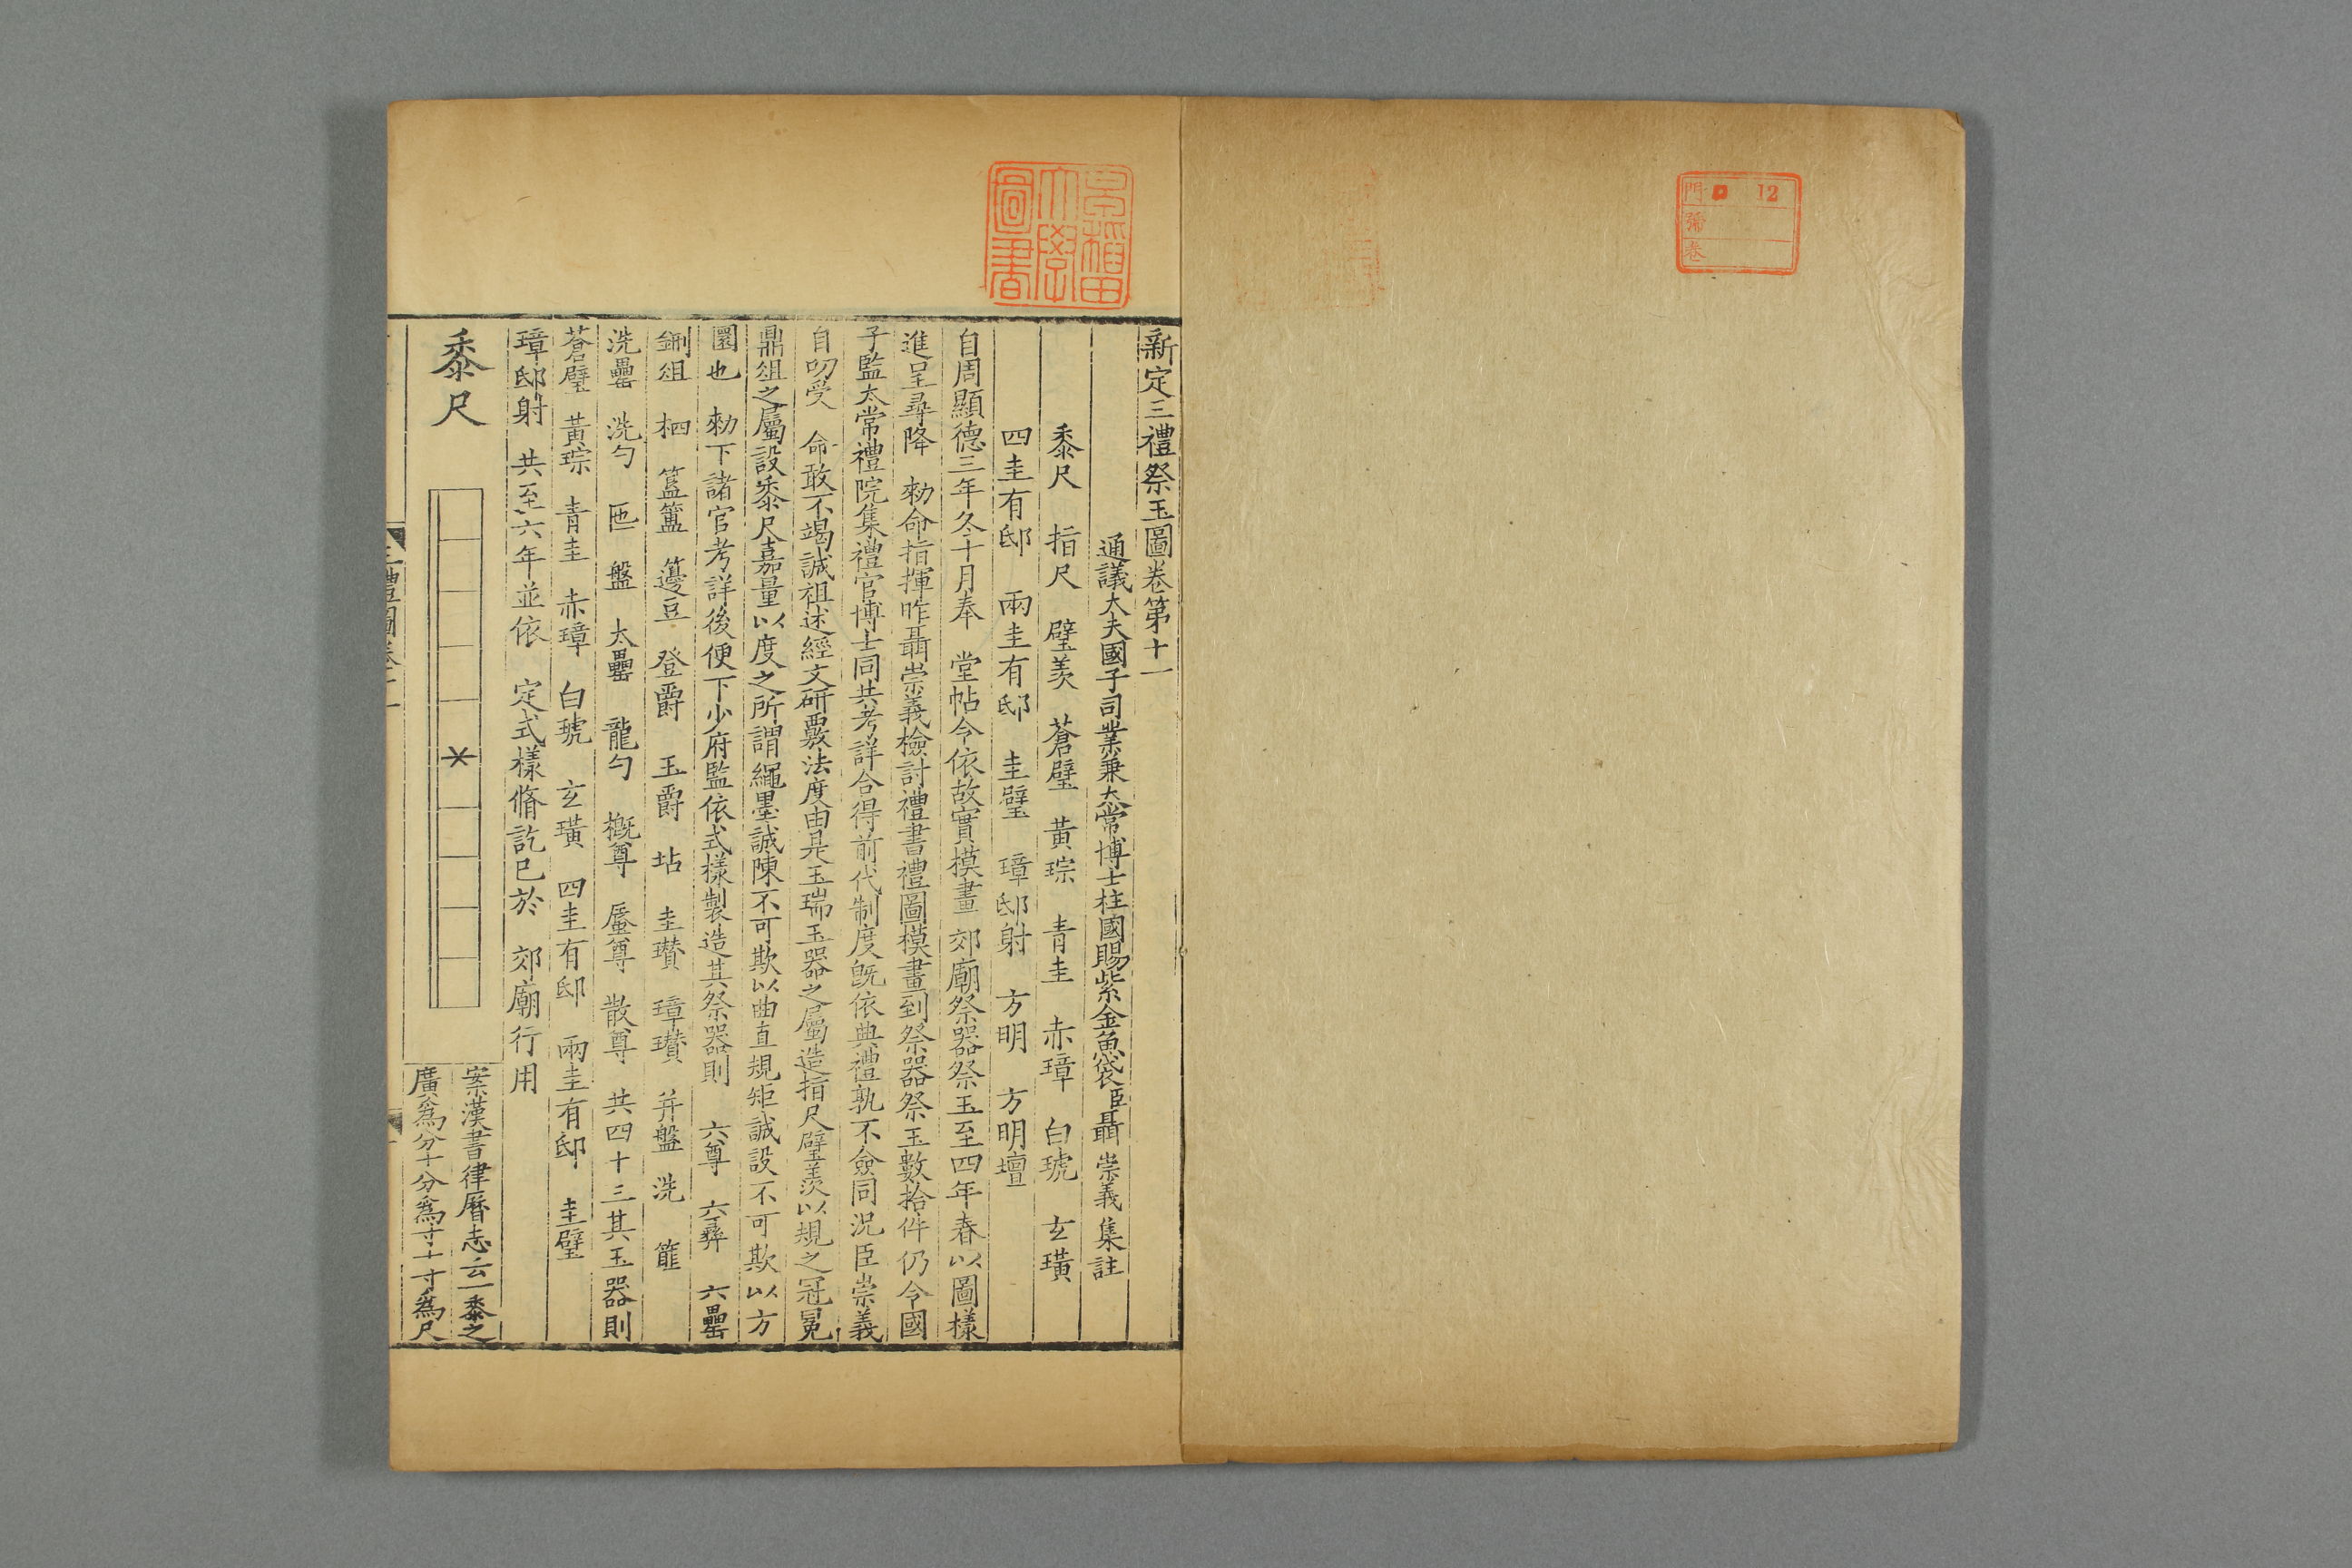 門 12
號
卷
早稻田
大學
圖書
新定三禮祭玉圖卷第十一
通議大夫國子司業兼太常博士柱國賜紫金魚袋臣聶崇義集註
黍尺 指尺 璧羨 蒼璧 黃琮 青圭 赤璋 白琥 玄璜
四圭有邸 兩圭有邸 圭璧 璋邸射 方明 方明壇
自周顯德三年冬十月奉 堂帖今依故實摸畫 郊廟祭器祭玉至四年春以圖樣
進呈尋降 勑命指揮昨聶崇義檢討禮書禮圖摸畫到祭器祭玉數拾件仍令國
子監太常禮院集禮官博士同共考詳合得前代制度旣依典禮孰不僉同況臣崇義
自叨受 命敢不竭誠祖述經文研覈法度由是玉瑞玉器之屬造指尺璧羨以規之冠冕
鼎俎之屬設黍尺嘉量以度之所謂繩墨誠陳不可欺以曲直規矩誠設不可欺以方
圜也 勑下諸官考詳後便下少府監依式樣製造其祭器則 六尊 六彝 六罍
鉶俎 柶 簋簠 籩豆 登爵 玉爵 坫 圭瓚 璋瓚 并盤 洗 篚
洗罍 洗勺 匜 盤 太罍 龍勺 概尊 蜃尊 散尊 共四十三其玉器則
蒼璧 黃琮 青圭 赤璋 白琥 玄璜 四圭有邸 兩圭有邸 圭璧
璋邸射 共至六年並依 定式樣脩訖已於 郊廟行用
黍尺
案漢書律曆志云一黍之
廣爲分十分爲寸十寸爲尺
三禮圖卷十一